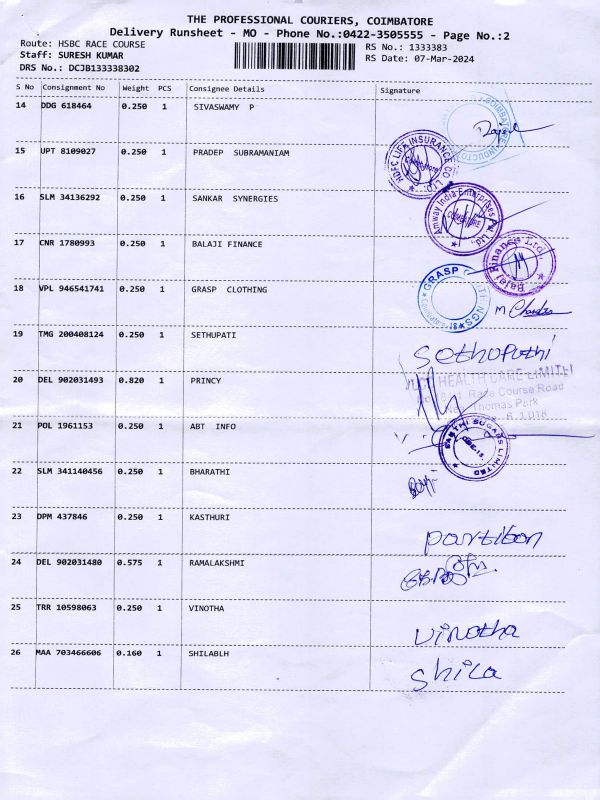 THE PROFESSIONAL COURIERS, COIMBATORE
Delivery Runsheet - MO - Phone No.:0422-3505555 - Page No.:2
Route: HSBC RACE COURSE
RS No.: 1333383
Staff: SURESH KUMAR
RS Date: 07-Mar-2024
DRS No.: DCJB133338302
S No Consignment No Weight PCS Consignee Details Signature
14 DDG 618464 0.250 1 SIVASWAMY P
15 UPT 8109027 0.250 1 PRADEP SUBRAMANIAM
HDFC LIFE INSURANCE CO LTD
16 SLM 34136292 0.250 1 SANKAR SYNERGIES
Amway India Enterprises Pvt. Ltd.
COIMBATORE
17 CNR 1780993 0.250 1 BALAJI FINANCE
Bajaj Finance Ltd
18 VPL 946541741 0.250 1 GRASP CLOTHING
GRASP
M Chandra
19 TMG 200408124 0.250 1 SETHUPATI
Sethupathi
20 DEL 902031493 0.820 1 PRINCY
HEALTH CARE LIMITED
Race Course Road
Thomas Park
21 POL 1961153 0.250 1 ABT INFO
SAKTHI SUGARS LIMITED
22 SLM 341140456 0.250 1 BHARATHI
23 DPM 437846 0.250 1 KASTHURI
Partiban
24 DEL 902031480 0.575 1 RAMALAKSHMI
25 TRR 10598063 0.250 1 VINOTHA
Vinotha
26 MAA 703466606 0.160 1 SHILABLH
Shila